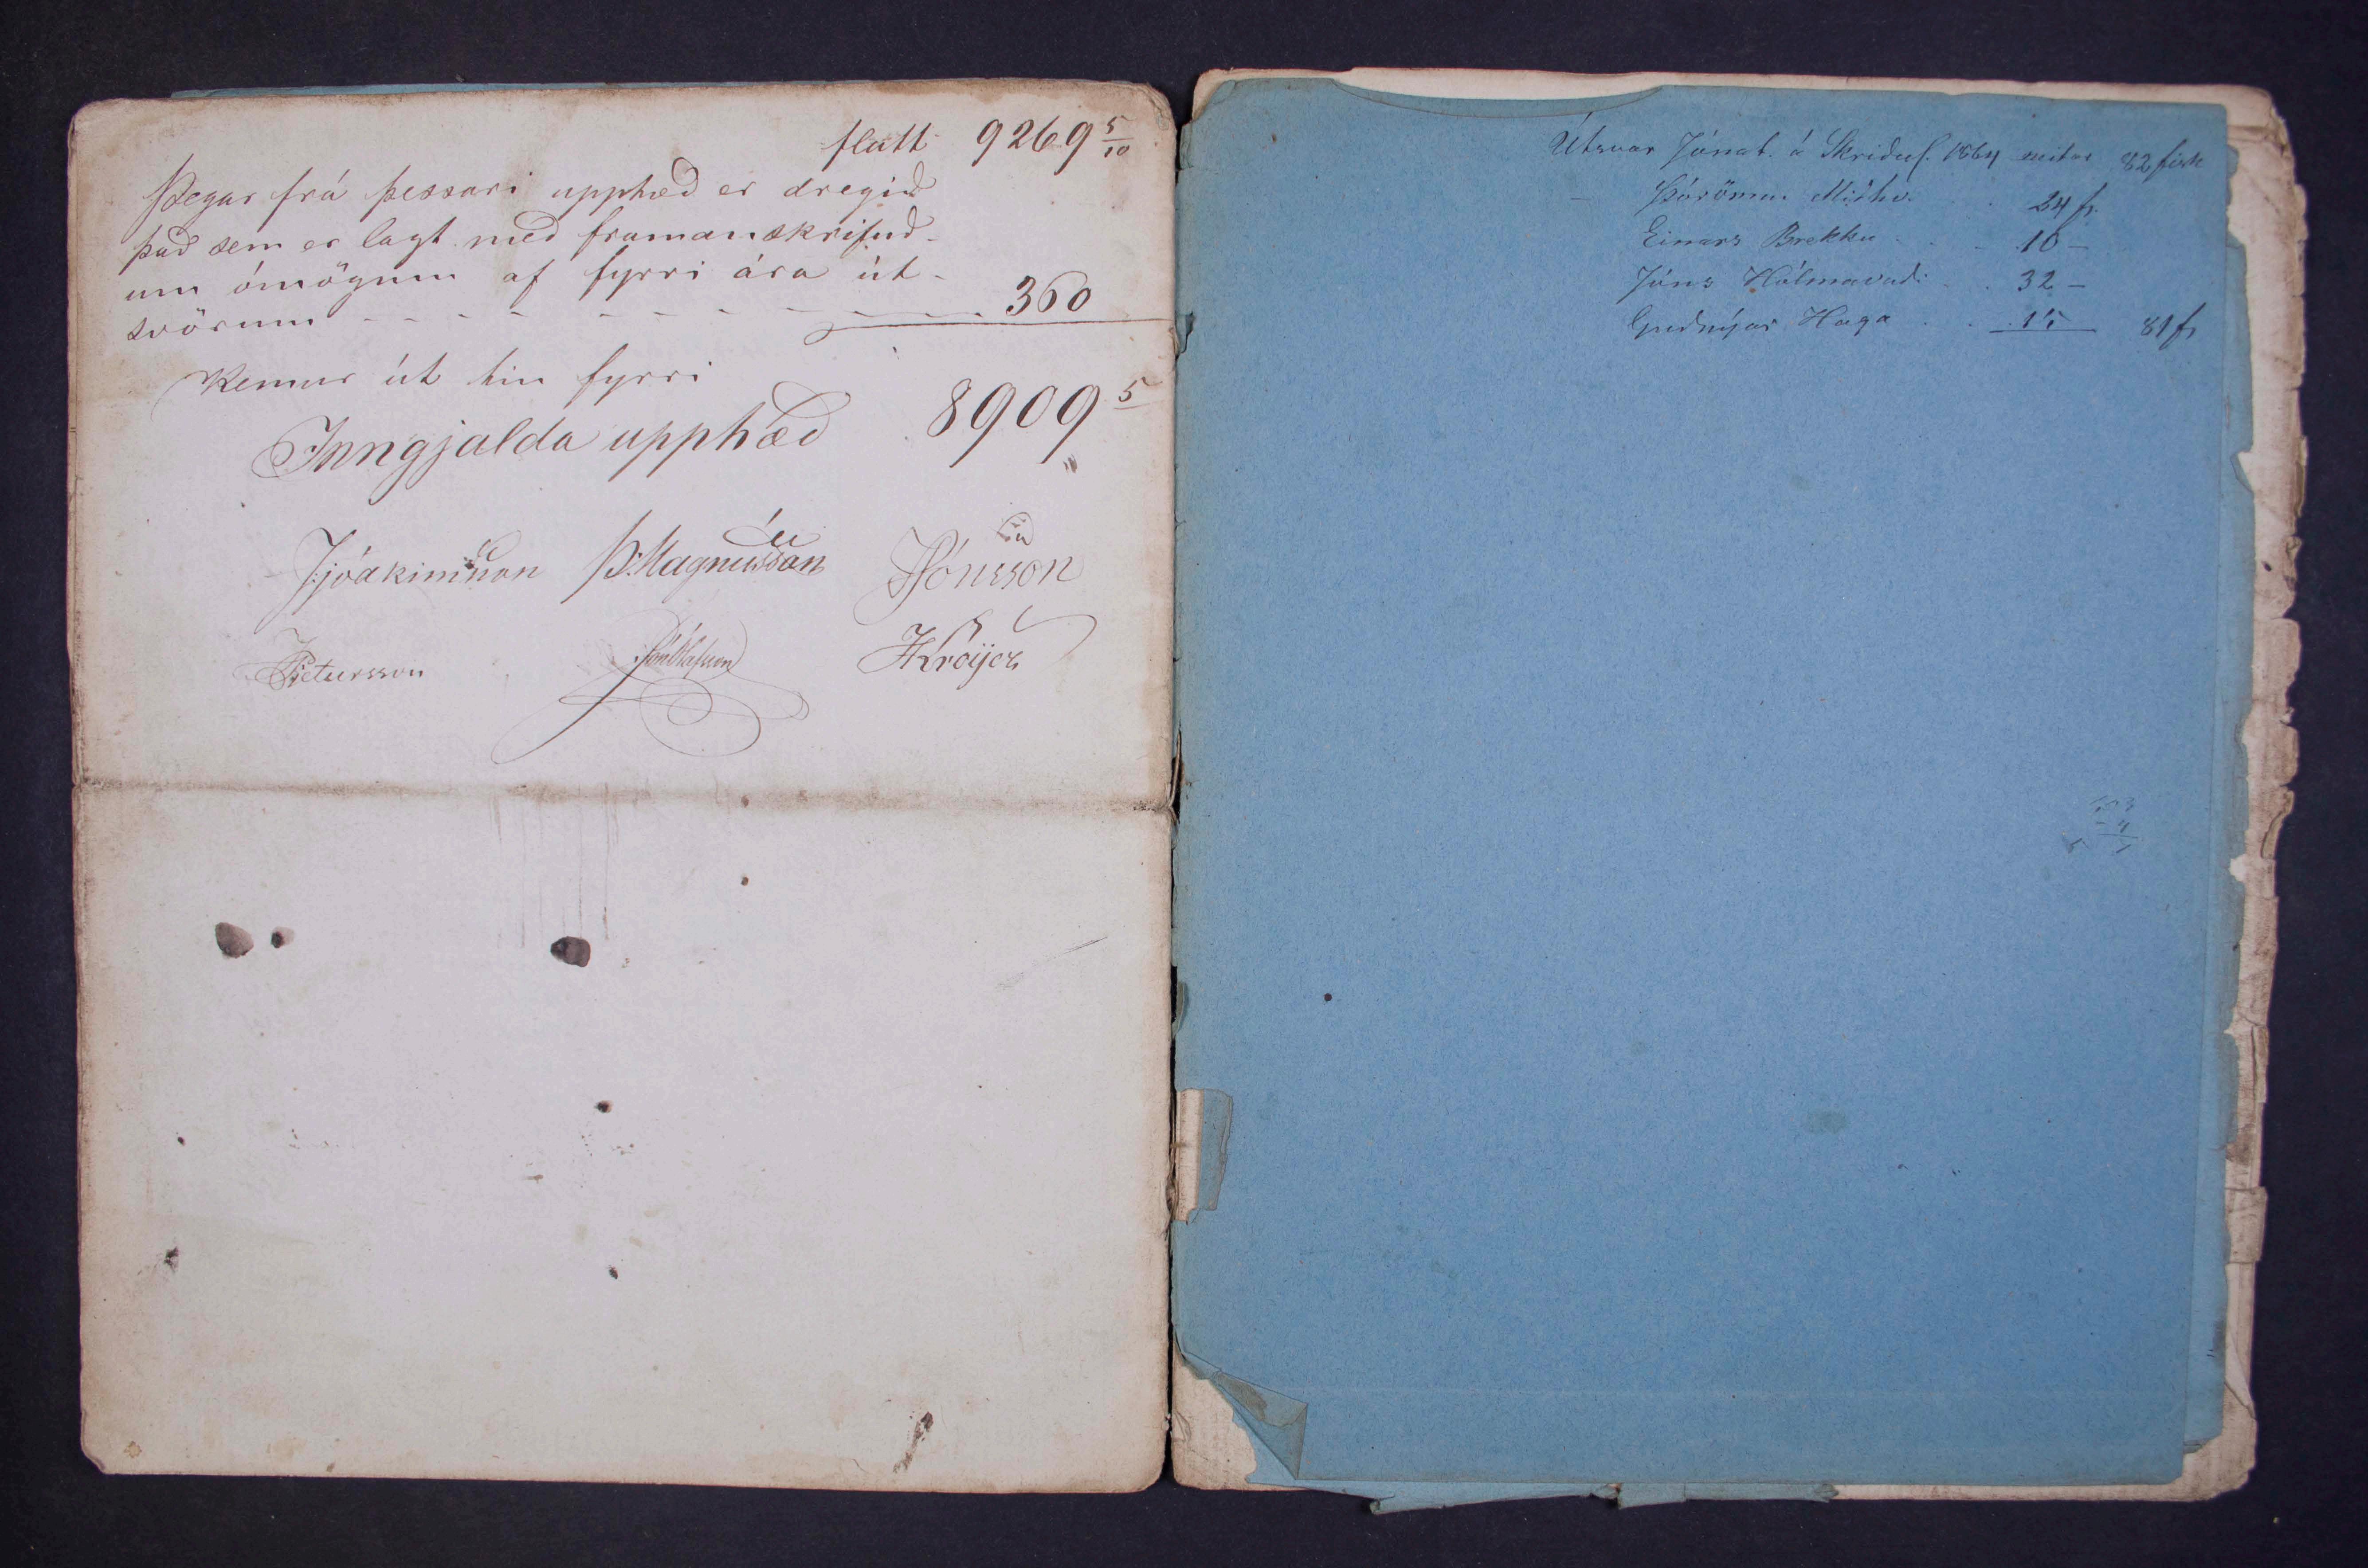 flutt 9269 5/10
Þegar frá þessari upphæð er dregið
það sem er lagt með framanskrifuð-
um ómögum af fyrri ára út-
svörum - - - - - - - - - - 360
Kemur út hin fyrri
Inngjalda upphæð 8909 5
JJóakimsson Þ.Magnússon JJónsson
Pjetursson JónÓlafsson HKröijer
Útsvar Jónat. á Skriðuf. 1864 82 fisk
Miðhv. . . 24 f.
Einars Brekku . . 10 —
Jóns Hólmavaði . . 32 —
Guðnýar Haga . . 15 81 f